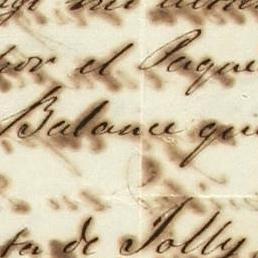 por el Paque
Balance que
ta de Jolly